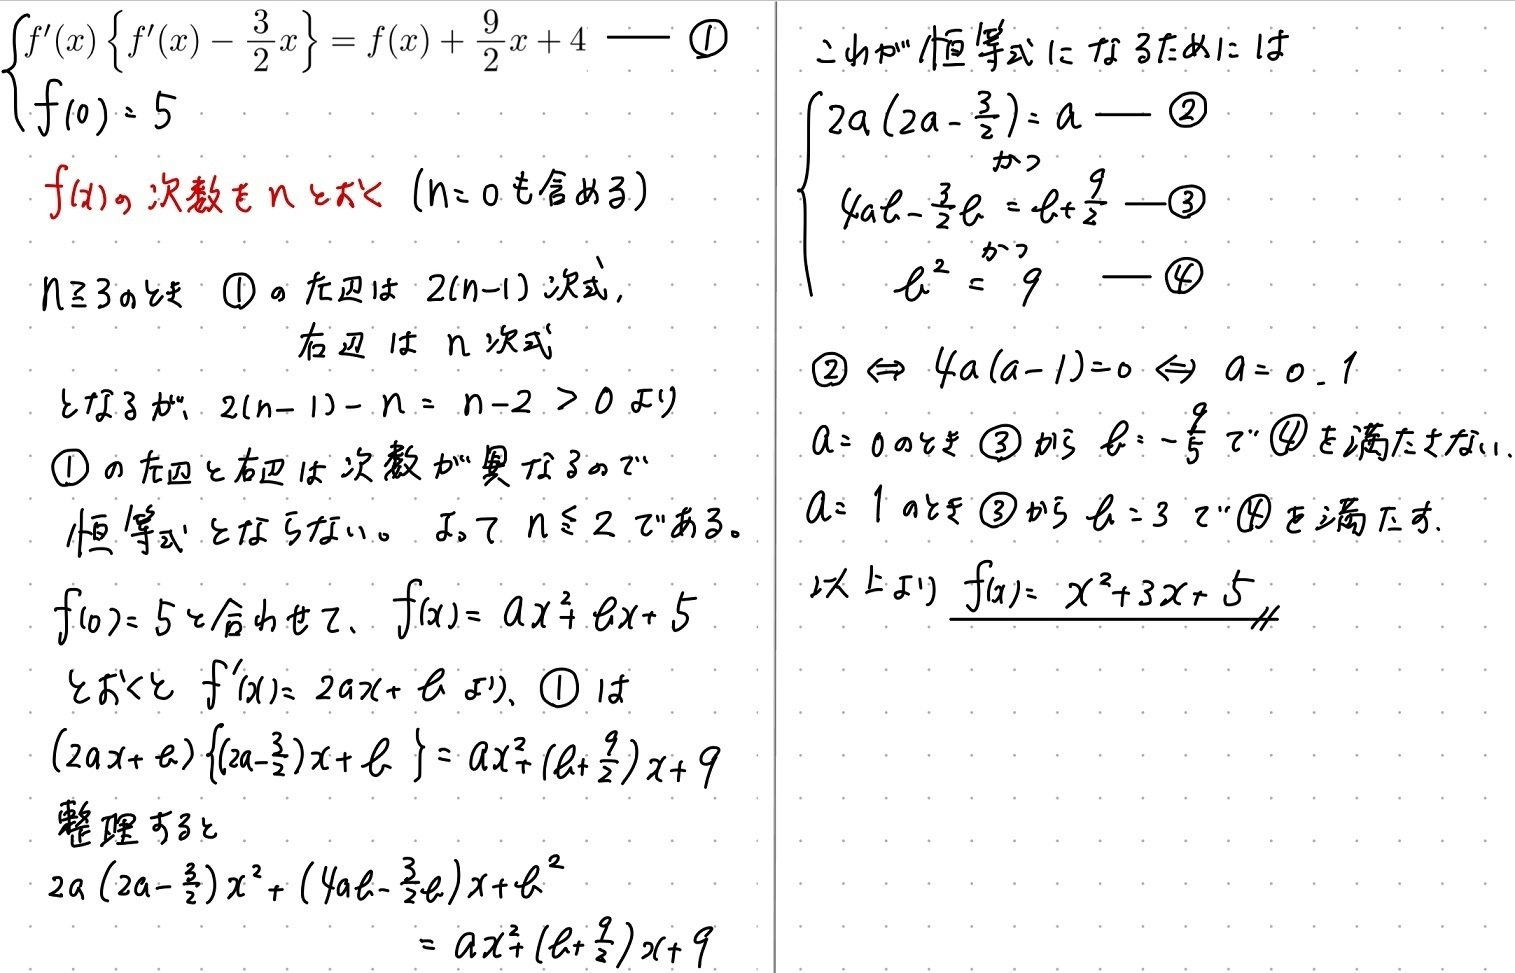 f′(x){f′(x) − 3/2 x} = f(x) + 9/2 x + 4 ―― ①
f(0) = 5
f(x)の次数をnとおく (n=0も含める)
n≧3のとき ①の左辺は 2(n-1)次式,
右辺は n次式
となるが、2(n-1)-n = n-2 > 0 より
①の左辺と右辺は次数が異なるので
恒等式とならない。よって n≦2 である。
f(0)=5と合わせて、f(x)= ax²+bx+5
とおくと f′(x)= 2ax+b より、①は
(2ax+b){(2a-3/2)x+b} = ax²+(b+9/2)x+9
整理すると
2a(2a-3/2)x²+(4ab-3/2b)x+b²
= ax²+(b+9/2)x+9
これが恒等式になるためには
2a(2a-3/2)=a ―― ②
かつ
4ab-3/2b = b+9/2 ―― ③
かつ
b² = 9 ―― ④
② ⇔ 4a(a-1)=0 ⇔ a=0, 1
a=0のとき ③から b=-9/5 で④を満たさない.
a=1のとき ③から b=3 で④を満たす.
以上より f(x)= x²+3x+5